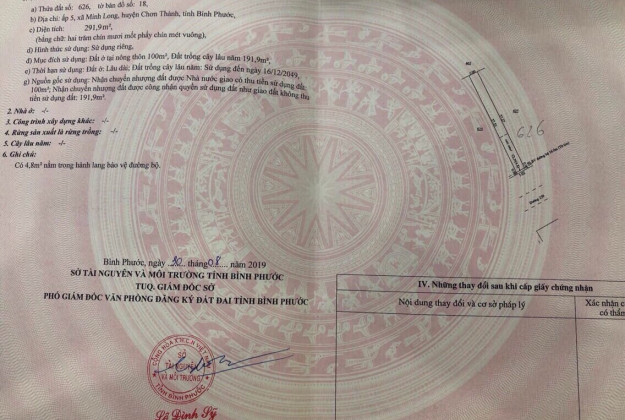 a) Thửa đất số: 626, tờ bản đồ số: 18,
b) Địa chỉ: ấp 5, xã Minh Long, huyện Chơn Thành, tỉnh Bình Phước,
c) Diện tích: 291,9m²,
(bằng chữ: hai trăm chín mươi mốt phẩy chín mét vuông),
d) Hình thức sử dụng: Sử dụng riêng,
đ) Mục đích sử dụng: Đất ở tại nông thôn 100m², Đất trồng cây lâu năm 191,9m²,
e) Thời hạn sử dụng: Đất ở: Lâu dài; Đất trồng cây lâu năm: Sử dụng đến ngày 16/12/2049,
g) Nguồn gốc sử dụng: Nhận chuyển nhượng đất được Nhà nước giao có thu tiền sử dụng đất:
100m²; Nhận chuyển nhượng đất được công nhận quyền sử dụng đất như giao đất không thu
tiền sử dụng đất: 191,9m².
2. Nhà ở: -/-
3. Công trình xây dựng khác: -/-
4. Rừng sản xuất là rừng trồng: -/-
5. Cây lâu năm: -/-
6. Ghi chú:
Có 4,8m² nằm trong hành lang bảo vệ đường bộ.
626
Bình Phước, ngày 20 tháng 08 năm 2019
SỞ TÀI NGUYÊN VÀ MÔI TRƯỜNG TỈNH BÌNH PHƯỚC
TUQ. GIÁM ĐỐC SỞ
PHÓ GIÁM ĐỐC VĂN PHÒNG ĐĂNG KÝ ĐẤT ĐAI TỈNH BÌNH PHƯỚC
SỞ
TÀI NGUYÊN
VÀ MÔI TRƯỜNG
TỈNH BÌNH PHƯỚC
Lê Đình Kỷ
IV. Những thay đổi sau khi cấp giấy chứng nhận
Nội dung thay đổi và cơ sở pháp lý
Xác nhận c
có thẩm